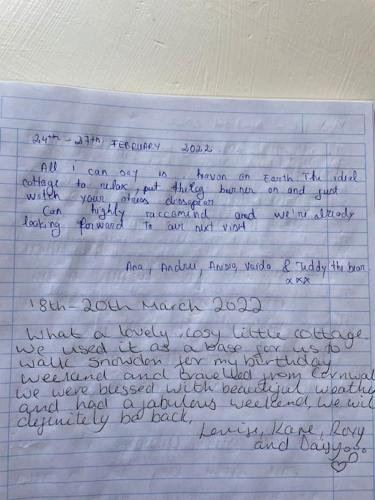 24th - 27th FEBRUARY 2022
All i can say is .. havan on Earth. The ideal
cottage to relax, put the log burner on and just
watch your stress dissapear
Can highly raccamend and we're already
looking forward to our next visit
Ana, Andrei, Vaida & Teddy the bear
xxx
18th - 20th March 2022
What a lovely cosy little cottage
we used it as a base for us to
walk Snowdon for my birthday
weekend and travelled from Cornwall
we were blessed with beautiful weather
and had a fabulous weekend, we will
definitely be back.
Louise, Kane, Roxy
and Daisy